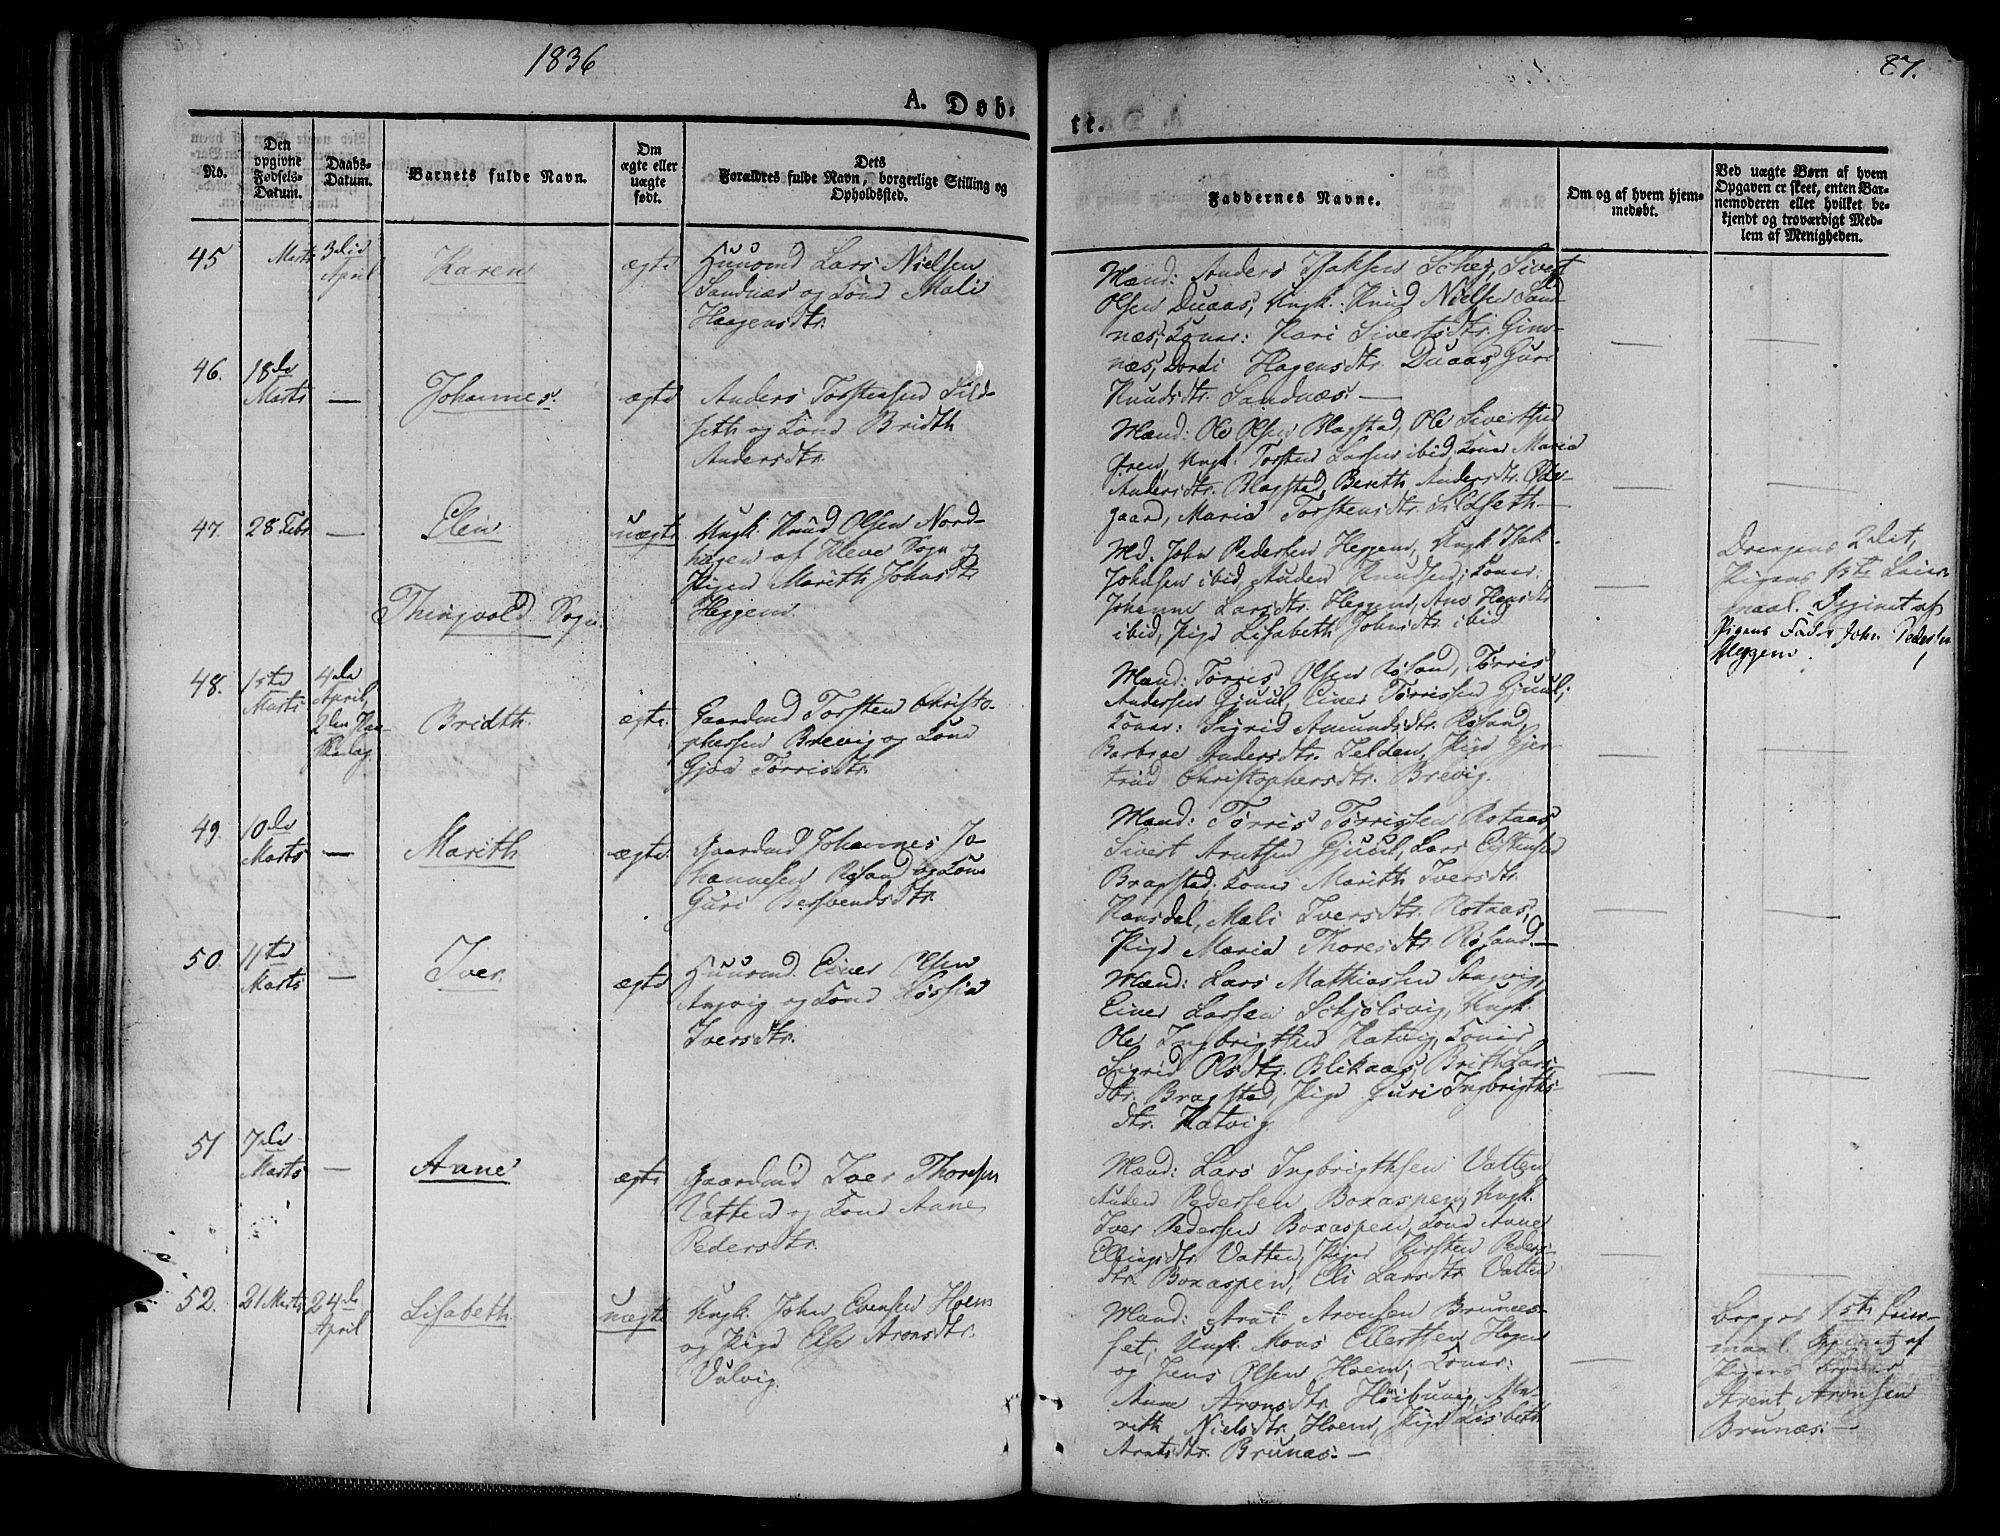 1836
87.
A. Døb-
te.
No.
Den opgivne Fødsels-Datum.
Daabs-Datum.
Barnets fulde Navn.
Om ægte eller uægte født.
Dets Forældres fulde Navn, borgerlige Stilling og Opholdssted.
Faddernes Navne.
Om og af hvem hjem-medøbt.
Ved uægte Børn af hvem Opgaven er skeet, enten Bar-nemoderen eller hvilket be-kjendt og troværdigt Med-lem af Menigheden.
45
Marts
3die April
Karen
ægte
Huusmd Lars Nielsen
Sandnæs og Kone Mali
Haagensdtr.
Mænd: Anders Isaksen Schei, Sivert
Olsen Duaas, Ungk: Knud Nielsen Sand-
næs, Koner: Kari Sivertsdtr. Gim-
næs, Dordi Hagensdtr. Duaas, Guri
Knudsdtr. Sandnæs.
46.
18de Marts
—
Johannes.
ægte
Anders Torstensen Sild-
seth og Kone Bridth
Andersdtr.
Mænd: Ole Olsen Blagstad, Ole Sivertsen
Øren, Ungk. Torsten Larsen ibid, Koner Maria
Andersdtr. Blagstad, Bereth Andersdtr. Øde-
gaard, Maria Torstensdtr. Sildseth —
47.
28 Febr
—
Elen
Thingvold Sogn.
uægte
Ungk. Knud Olsen Nord-
hagen af Kleve Sogn og
Pigen Marith Johnsdtr
Heggem.
Md. John Pedersen Heggem, Ungk Isak
Johnsen ibid, Auden Knudsen; Koner:
Johanne Larsdtr. Heggem, Ane Hansdtr
ibid, Pige Lisabeth Johnsdtr. ibid
Drengens 2det,
Pigens 1ste Leier-
maal. Opgivet af
Pigens Fader John Pedersen
Heggem.
48.
1ste Marts
4de April, 2den Paa-skedag
Bridth.
ægte.
Gaardmd Torsten Christo-
phersen Brevig og Kone
Gjøa Tørrisdtr.
Mænd: Tørris Olsen Røsand, Tørris
Andersen Gjuul, Einer Tørrissen Gjuul;
Koner: Sigrid Amundsdtr. Røsand,
Barbroe Andersdtr. Telden, Pige Gjer-
trud Christophersdtr. Brevig.
49.
10de Marts
—
Marith
ægte.
Gaardmd Johannes Jo-
hannesen Røsand og Kone
Guri Besvendsdtr.
Mænd: Tørris Tørrissen Rotaas,
Sivert Arntsen Gjuul, Lars Eistensen
Bragstad, Koner Marith Iversdtr.
Kansdal, Mali Iversdtr. Rotaas,
Pige Maria Thoresdtr. Røsand. —
50.
11te Marts
—
Iver.
ægte
Huusmd. Einer Olsen
Angvig og Kone
Iversdtr.
Mænd: Lars Mathiassen Angvig,
Einer Larsen Schjølsvig, Ungk.
Ole Ingbrigtsen Hatvig, Koner
Sigrid Olsdtr. Blikaas, Brith Lars-
dtr. Bragstad, Pige Guri Ingbrigts-
dtr. Hatvig.
51
7de Marts
—
Anne
ægte
Gaardmd Iver Thoresen
Vatten og Kone Anne
Pedersdtr.
Mænd: Lars Ingbrigthsen Vatten
Auden Pedersen Boxaspen, Ungk.
Iver Pedersen Boxaspen, Kone Anne
Ellingsdtr. Vatten, Pige Kirsten Peders-
dtr. Boxaspen, Eli Larsdtr Vatten
52.
21 Marts
24de April
Lisabeth.
uægte
Ungk. John Evensen Hoem
og Pige Else Aronsdtr.
Vulvig.
Mænd: Aronsen Brunes-
set; Ungk. Mons Ellertsen Hagen
og Jens Olsen Hoem; Koner:
Anne Aronsdtr. Ma-
rith Nielsdtr. Hoem, Pige Lisbeth
Arntsdtr. Brunæs. —
Begges 1ste Leier-
maal. Opgivet af
Pigens Broder
Arent Aronsen
Brunæs. —